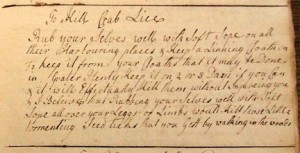 To Kill Crab Lice
Rub your Selves well with Soft Sope on all
their Harbouring places & Keep a Linning Cloath on
To keep it from your Cloaths that it may be Done
in Water Plenty Keep it on 2 or 3 Days if you Can
& it will Effectually Kill them without Injuring you
& I Believe that Rubbing your Selves well with Soft
Sope all over your Leggs or Limbs would Kill those Little
Tormenting Seed Ticks that you Gett by walking in the woods